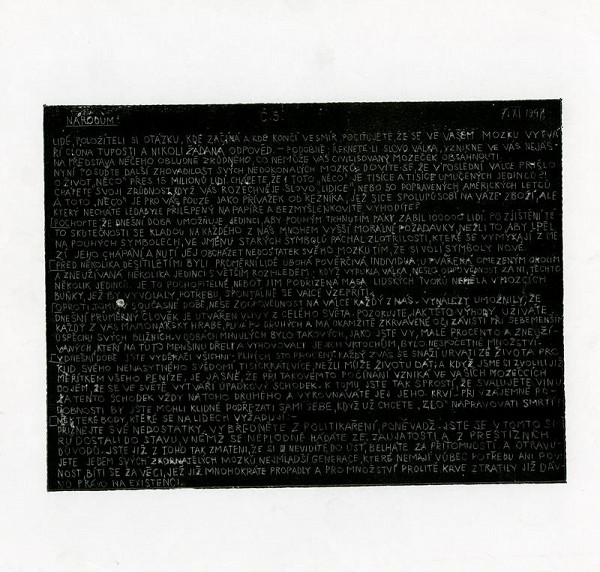 NÁRODŮM! Č.5. 7. XI 1947
LIDÉ, POLOŽÍTELI SI OTÁZKU, KDE ZAČÍNÁ A KDE KONČÍ VESMÍR, POCIŤUJETE, ŽE SE VE VAŠEM MOZKU VYTVÁ-
ŘÍ CLONA TUPOSTI A NIKOLI ŽÁDANÁ ODPOVĚĎ. – PODOBNĚ: ŘEKNETE-LI SLOVO VÁLKA, VZNIKNE VE VÁS NEJAS-
NÁ PŘEDSTAVA NĚČEHO OBLUDNĚ ZRŮDNÉHO, CO NEMŮŽE VÁŠ CIVILISOVANÝ MOZEČEK OBSÁHNOUTI.
NYNÍ POSUĎTE DALŠÍ ZHOVADILOST SVÝCH NEDOKONALÝCH MOZKŮ: DOVÍTE-SE, ŽE V POSLEDNÍ VÁLCE PŘIŠLO
O ŽIVOT „NĚCO" PŘES 15 MILIONŮ LIDÍ. CHÁPETE, ŽE I TOTO „NĚCO" JE TISÍCE A TISÍCE UMUČENÝCH JEDINCŮ?
CHÁPETE SVOJI ZRŮDNOST, KDYŽ VÁS ROZECHVĚJE SLOVO „LIDICE" NEBO 50 POPRAVENÝCH AMERICKÝCH LETCŮ
A TOTO „NĚCO" JE PRO VÁS POUZE JAKO PŘÍVAŽEK OD ŘEZNÍKA, JENŽ SICE SPOLUPŮSOBÍ NA VÁZE ZBOŽÍ, ALE
KTERÝ NECHÁTE LEDABYLE PŘILEPENÝ NA PAPÍŘE A BEZMYŠLENKOVITĚ VYHODÍTE?
POCHOPTE, ŽE DNEŠNÍ DOBA UMOŽŇUJE JEDINCI, ABY POUHÝM TRHNUTÍM PÁKY ZABIL 100000 LIDÍ. PO ZJIŠTĚNÍ TÉ-
TO SKUTEČNOSTI SE KLADOU NA KAŽDÉHO Z NÁS MNOHEM VYŠŠÍ MORÁLNÍ POŽADAVKY, NEŽLI TO, ABY LPĚL
NA POUHÝCH SYMBOLECH, VE JMÉNU STARÝCH SYMBOLŮ PÁCHAL ZLOTŘILOSTI, KTERÉ SE VYMYKAJÍ Z ME-
ZÍ JEHO CHÁPÁNÍ A NUTÍ JEJ OBCHÁZET NEDOSTATEK SVÉHO MOZKU TÍM, ŽE SI VOLÍ SYMBOLY NOVÉ.
PŘED NĚKOLIKA DESÍTILETÍMI BYLI PRŮMĚRNÍ LIDÉ UBOHÁ POVĚRČIVÁ INDIVIDUA, UTVÁŘENÁ OMEZENÝM OKOLÍM
A ZNEUŽÍVANÁ NĚKOLIKA JEDINCI S VĚTŠÍM ROZHLEDEM; KDYŽ VYPUKLA VÁLKA, NESLO ODPOVĚDNOST ZA NI, TĚCHTO
NĚKOLIK JEDINCŮ. JE TO POCHOPITELNÉ NEBOŤ JIM PODŘÍZENÁ MASA LIDSKÝCH TVORŮ NEMĚLA V MOZCÍCH
BUŇKY, JEŽ BY VYVOLALY POTŘEBU SPONTÁLNĚ SE VÁLCE VZEPŘÍTI.
OPROTI TOMU V SOUČASNÉ DOBĚ NESE ZODPOVĚDNOST NA VÁLCE KAŽDÝ Z NÁS. VYNÁLEZY UMOŽNILY, ŽE
DNEŠNÍ PRŮMĚRNÝ ČLOVĚK JE UTVÁŘEN VLIVY Z CELÉHO SVĚTA. POZORUJTE, JAK TÉTO VÝHODY UŽÍVÁTE:
KAŽDÝ Z VÁS MAMONÁŘSKY HRABE, PLIVE PO DRUHÝCH A MÁ OKAMŽITĚ ZKRVAVENÉ OČI ZÁVISTÍ PŘI SEBEMENŠÍM
ÚSPĚCHU SVÝCH BLIŽNÍCH. V DOBÁCH MINULÝCH BYLO TAKOVÝCH, JAKO JSTE VY, MALÉ PROCENTO A ZNEUŽÍ-
VANÝCH, KTEŘÍ NA TUTO MENŠINU DŘELI A VYHOVOVALI JEJÍM VRTOCHŮM, BYLO NESPOČETNÉ MNOŽSTVÍ.
V DNEŠNÍ DOBĚ JSTE VYDĚRAČI VŠICHNI. PLNÝCH STO PROCENT! KAŽDÝ Z VÁS SE SNAŽÍ URVATI ZE ŽIVOTA PRO
KLID SVÉHO NENASYTNÉHO SVĚDOMÍ, TISÍCKRÁT VÍCE, NEŽLI MŮŽE ŽIVOTU DÁTI, A KDYŽ JSME SI ZVOLILI JIŽ
MĚŘÍTKEM VŠEHO PENÍZE, JE JASNÉ, ŽE PŘI TAKOVÉMTO POČÍNÁNÍ VZNIKÁ VE VAŠICH MOZEČCÍCH
DOJEM, ŽE SE VE SVĚTĚ VYTVÁŘÍ ÚPADKOVÝ SCHODEK. K TOMU JSTE TAK SPROSTÍ, ŽE SVALUJETE VINU
ZA TENTO SCHODEK VŽDY NA TOHO DRUHÉHO A VYROVNÁVÁTE JEJ JEHO KRVÍ. – PŘI VZÁJEMNÉ PO-
DOBNOSTI BY JSTE MOHLI KLIDNĚ PODŘEZATI SAMI SEBE, KDYŽ UŽ CHCETE „ZLO" NAPRAVOVATI SMRTÍ!
NĚKTERÉ BODY, KTERÉ SE NALÉHAVĚ VYŽADUJÍ:
PŘIZNEJTE SVÉ NEDOSTATKY, VYBŘEDNĚTE Z POLITIKAŘENÍ, PONĚVADŽ JSTE SE V TOMTO SMĚ-
RU DOSTALI DO STAVU, V NĚMŽ SE NEPLODNĚ HÁDÁTE ZE ZAUJATOSTI A Z PRESTIŽNÍCH
DŮVODŮ. JSTE JIŽ Z TOHO TAK ZMATENI, ŽE SI NEVIDÍTE DO ÚST, BELHÁTE ZA PŘÍTOMNOSTÍ A OTRAVU-
JETE JEDEM SVÝCH ZKORNATĚLÝCH MOZKŮ NEJMLADŠÍ GENERACE, KTERÉ NEMAJÍ VŮBEC POTŘEBU ANI POVIN-
NOST BÍTI SE ZA VĚCI, JEŽ JIŽ MNOHOKRÁTE PROPADLY A PRO MNOŽSTVÍ PROLITÉ KRVE ZTRATILY JIŽ DÁV-
NO PRÁVO NA EXISTENCI.